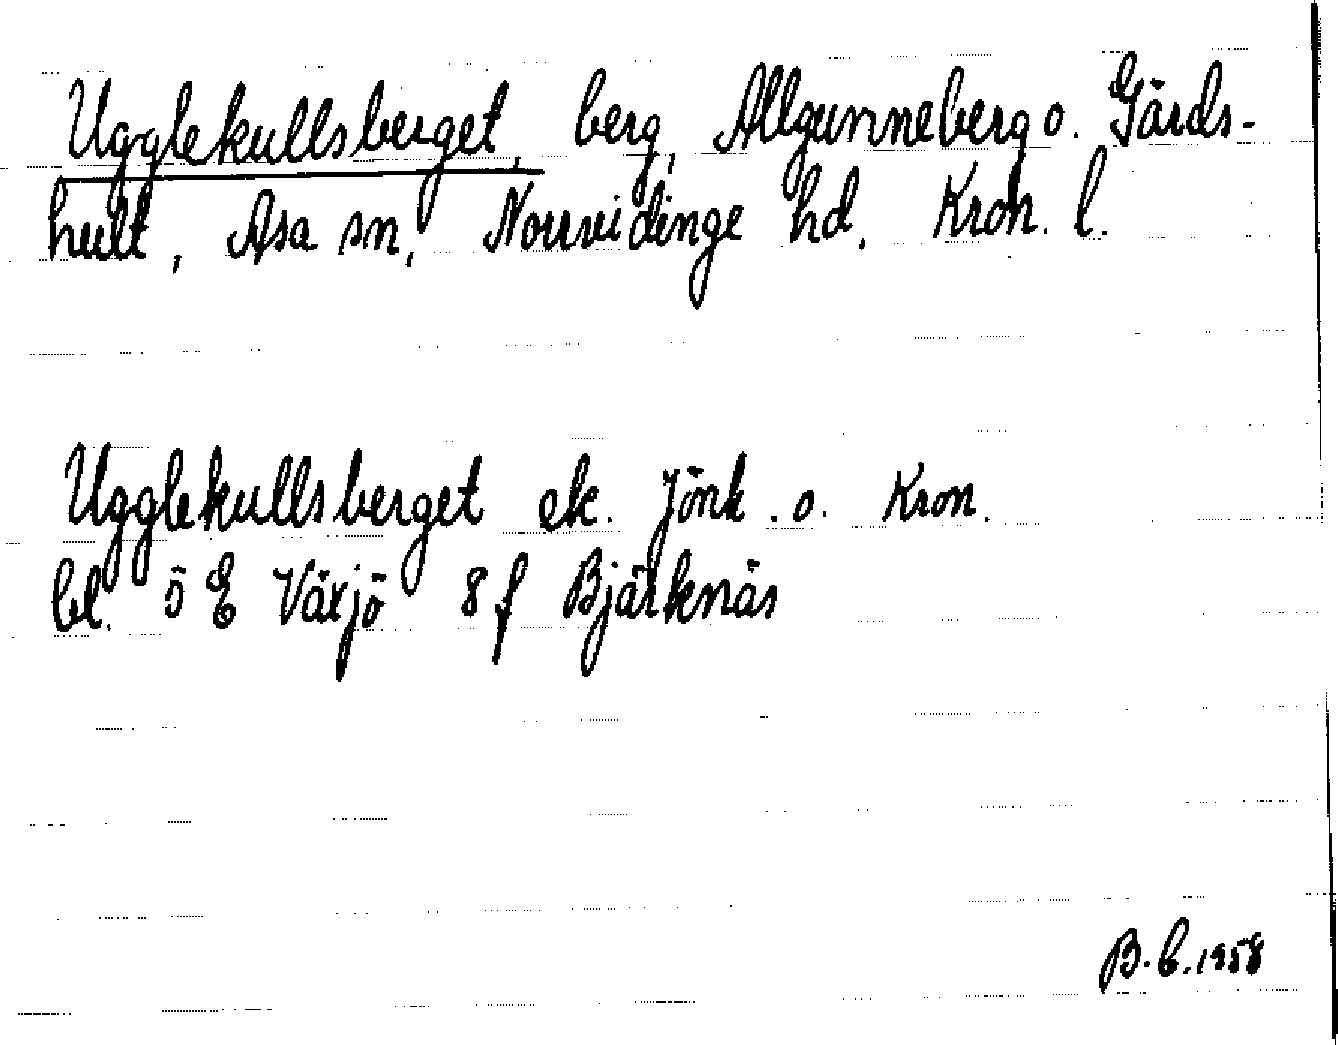 Ugglekullsberget, berg, Allgunneberg o. Gärds-
hult, Asa sn, Norrvidinge hd, Kron. l.
Ugglekullsberget ek. Jönk. o. Kron.
bl. ö E Växjö 8 f Bjärknäs
B.C. 1958